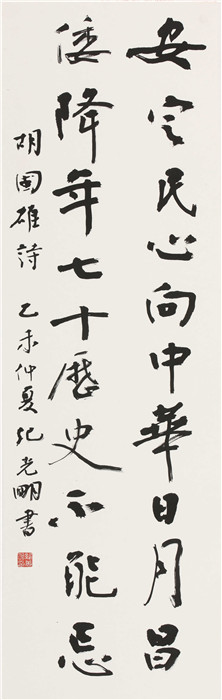 安定民心向中華日月昌
倭降年七十歷史不能忘
胡國雄詩 乙未仲夏 紀光明書